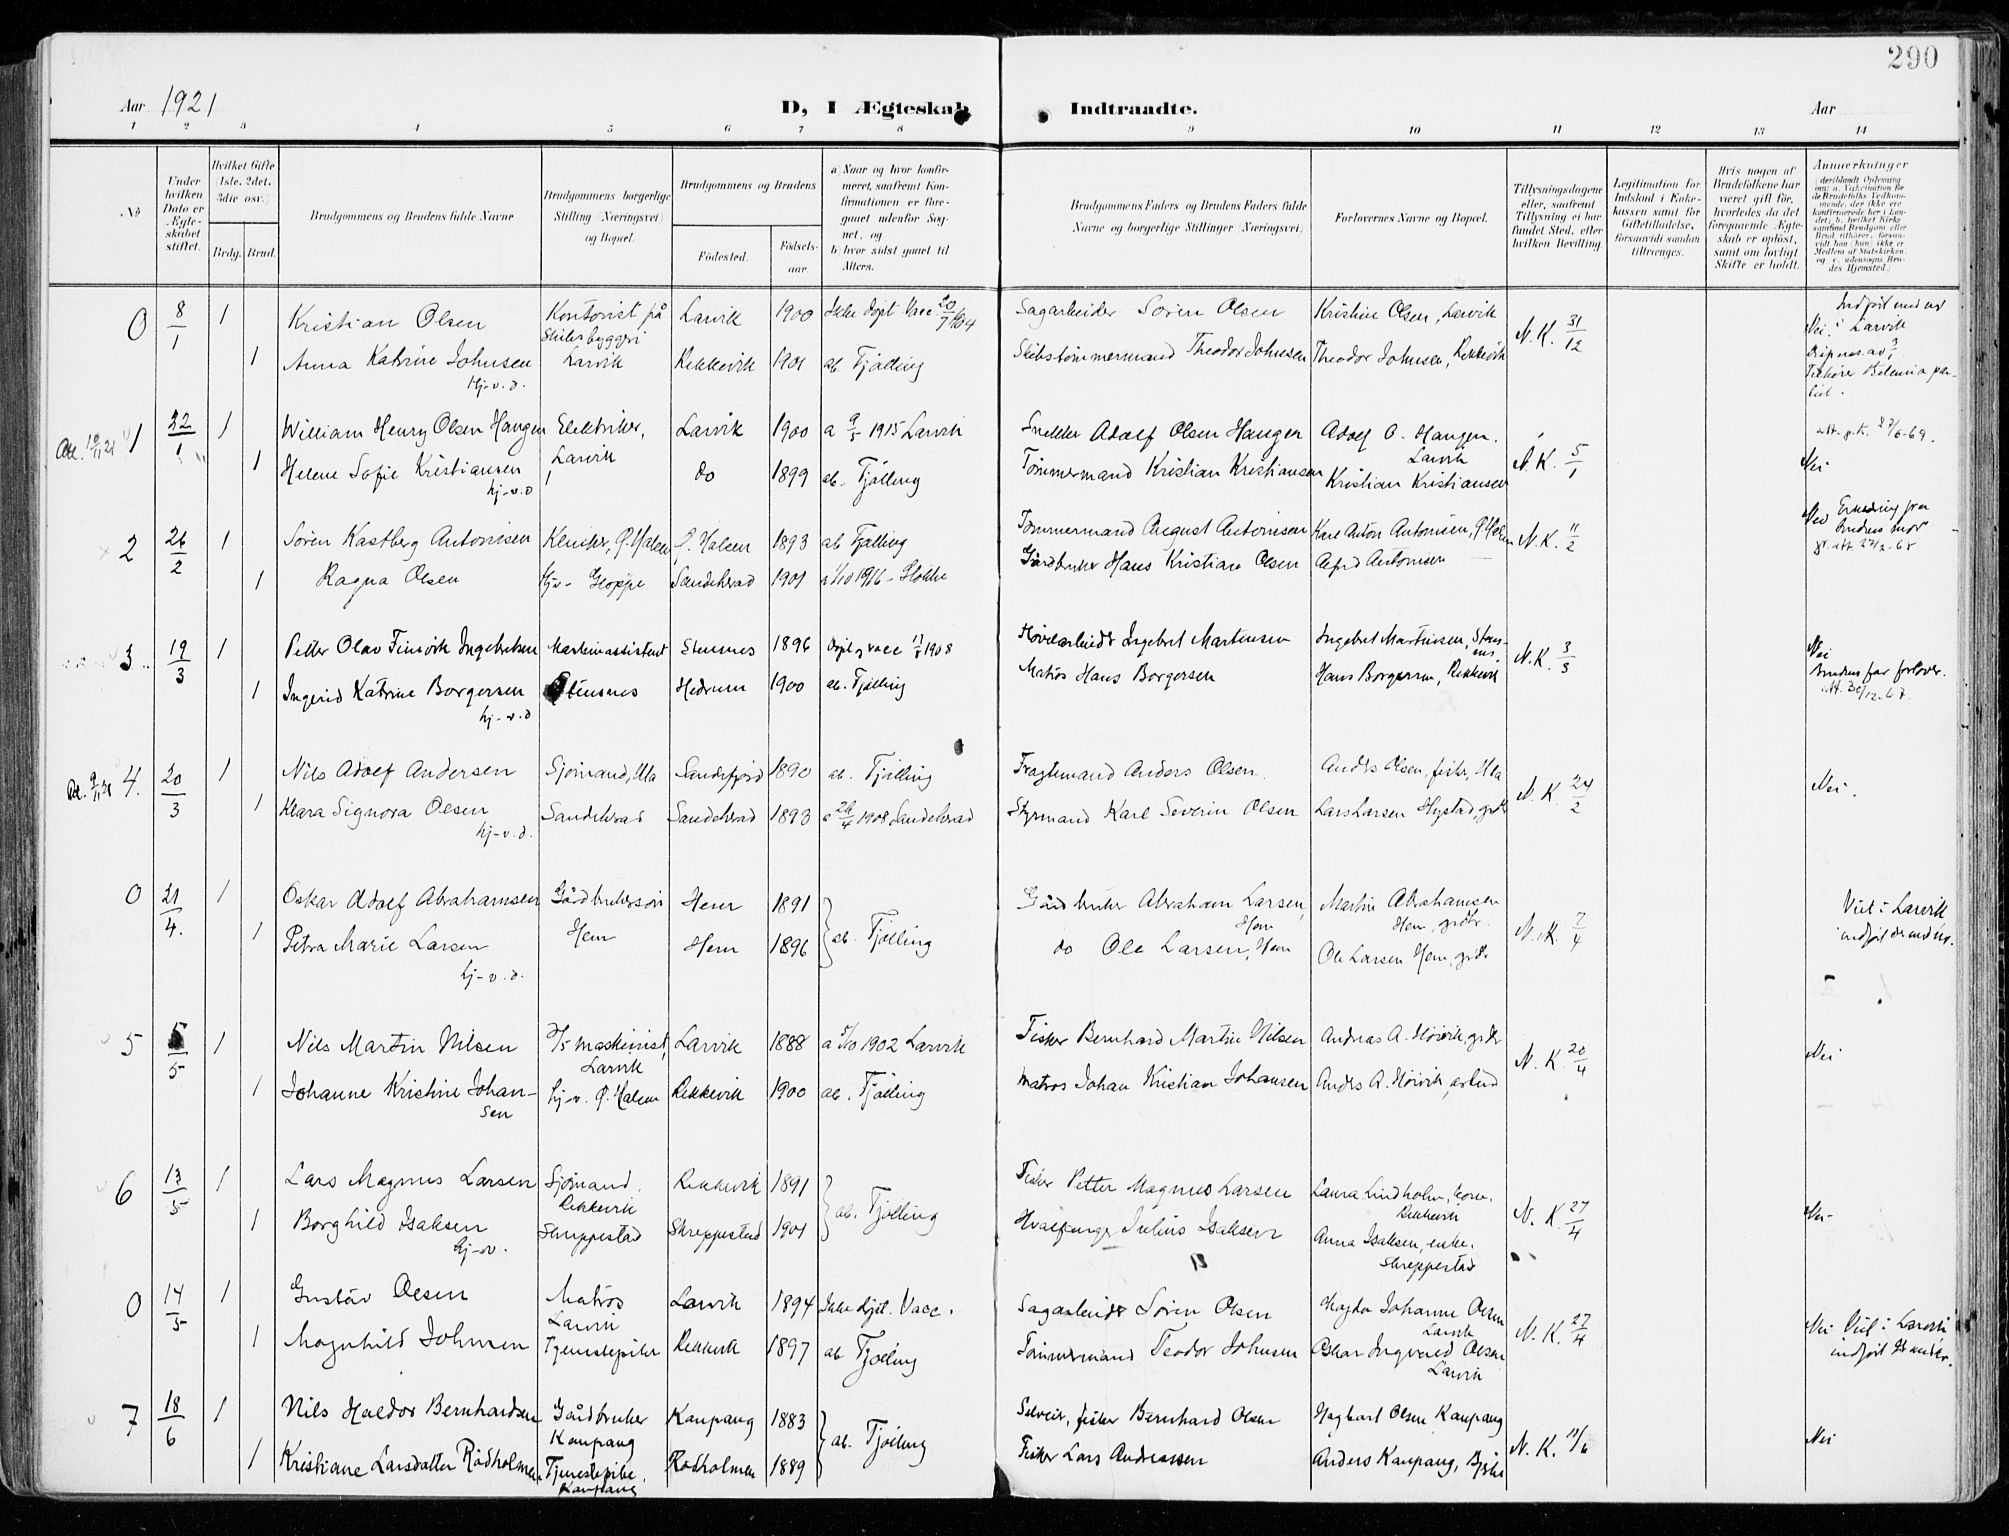 290
Aar 1921 D, I Ægteskab Indtraadte. Aar
1 2 3 4 5 6 7 8 9 10 11 12 13 14
No
Under hvilken Dato er Ægteskabet stiftet.
Hvilket Gifte (1ste, 2det, 3die osv.)
Brdg. Brud.
Brudgommens og Brudens fulde Navne
Brudgommens borgerlige Stilling (Næringsvei) og Bopæl.
Brudgommens og Brudens
Fødested.
Fødselsaar.
a) Naar og hvor konfirmeret, saafremt Konfirmationen er foregaaet udenfor Sognet, og
b) hvor sidst gaaet til Alters.
Brudgommens Faders og Brudens Faders fulde Navne og borgerlige Stillinger (Næringsvei)
Forlovernes Navne og Bopæl.
Tillysningsdagene eller, saafremt Tillysning ei har fundet Sted, efter hvilken Bevilling
Legitimation for Indskud i Enkekassen samt for Giftetilladelse, forsaavidt saadan tiltrænges.
Hvis nogen af Brudefolkene har været gift før, hvorledes da det foregaaende Ægteskab er opløst, samt om lovligt Skifte er holdt.
Anmærkninger
0 8/1 1 Kristian Olsen Kontorist på Skibsbyggeri Larvik Larvik 1900 Ikke døpt Vacc 20/7 1904 Sagarbeider Søren Olsen Kristine Olsen, Larvik N. K. 31/12 Nei. i Larvik
1 Anna Katrine Johnsen hj-v.d. Rekkevik 1901 ab Tjølling Skibstømmermand Theodor Johnsen Theodor Johnsen, Rekkevik
1 22/1 1 William Henry Olsen Haugen Elektriker, Larvik Larvik 1900 a 9/5 1915 Larvik Snekker Adolf Olsen Haugen Adolf O. Haugen. Larvik N. K. 5/1 Nei
1 Helene Sofie Kristiansen hj-v.d do 1899 ab. Tjølling Tømmermand Kristian Kristiansen Kristian Kristiansen
2 26/2 1 Søren Kastberg Antonisen Ø. Halsen 1893 ab Tjølling Tømmermand August Antonisen Karl Anton Antonisen, N. K. 11/2
1 Ragna Olsen Hj-v- Gloppe Sandeherad 1901 a 1/10 1916 - Stokke Gårdbruker Hans Kristian Olsen Alfred Antonisen
3 19/3 1 Petter Olav Finsvik Ingebretsen Maskinassistent Stensnes 1896 Døpt, vacc 11/8 1908 Høvlarbeider Ingebret Martinsen Ingebret Martinsen, Stensnes. N. K. 3/3 Nei
1 Ingerid Katrine Borgersen hj-v.d Stensnes Hedrum 1900 ab. Tjølling Matros Hans Borgersen Hans Borgersen, Rekkevik Brudens far forlover.
4. 20/3 1 Nils Adolf Andersen Sjømand, Ula Sandefjord 1890 ab. Tjølling Fragtemand Anders Olsen. Anders Olsen, fisker, Ula N. K. 24/2 Nei.
1 Klara Signora Olsen hj-v.d. Sandeherad Sandeherad 1893 a 26/4 1908 Sandeherad Styrmand Karl Severin Olsen Lars Larsen Hystad, grdbr
0 21/4. 1 Oskar Adolf Abrahamsen Gårdbrukersøn Hem Hem 1891 ab. Tjølling Gårdbruker Abraham Larsen, Hem Martin Abrahamsen Hem, grdbr. N. K. 7/4 Viet i Larvik
1 Petra Marie Larsen hj-v.d. Hem 1896 do Ole Larsen, Hem Ole Larsen Hem, grdbr
5 5/5 1 Nils Martin Nilsen maskinist, Larvik Larvik 1888 a 5/10 1902 Larvik Fisker Bernhard Martin Nilsen Andreas A. Høivik, grdbr N. K. 20/4 Nei
1 Johanne Kristine Johansen hj-v. Ø. Halsen Rekkevik 1900 ab. Tjølling Matros Johan Kristian Johansen Anders A. Høivik,
6 13/5 1 Lars Magnus Larsen Sjømand. Rekkevik Rekkevik 1891 ab. Tjølling Fisker Petter Magnus Larsen Laura Lindholm, Rekkevik N. K. 27/4 Nei-
1 Borghild Isaksen hj-v. Skreppestad Skreppestad 1901 Hvalfanger Julius Isaksen Anna Isaksen, enke. Skreppestad
0 14/5 1 Gustav Olsen Matros Larvik Larvik 1894 Ikke døpt. Vacc. Sagarbeider Søren Olsen Magda Johanne Olsen Larvik N. K. 27/4 Nei Viet i Larvik
1 Magnhild Johnsen Tjenestepike Rekkevik 1897 ab Tjølling Tømmermand Teodor Johnsen Oskar Ingvald Olsen Larvik
7 18/6 1 Nils Haldor Bernhardsen Gårdbruker Kaupang Kaupang 1883 ab. Tjølling Selveier, fisker Bernhard Olsen Hagbart Olsen Kaupang N. K. 11/6 Nei
1 Kristiane Larsdatter Rødholmen Tjenestepike, Kaupang Rødholmen 1889 Fisker Lars Andreassen Anders Kaupang,